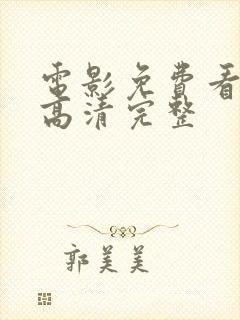 電影免費看
高清完整
郭美美